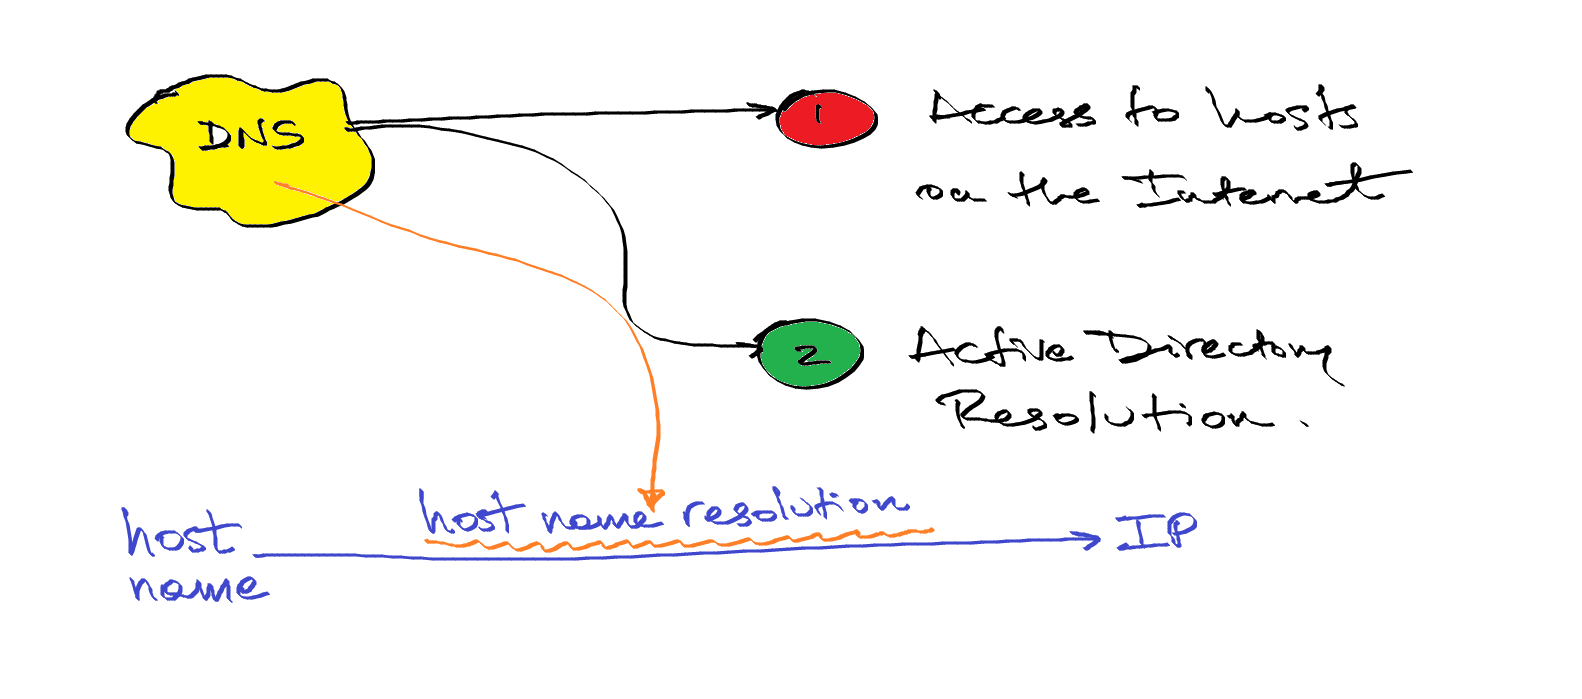 DNS
1
Access to hosts
on the Internet
2
Active Directory
Resolution.
host name resolution
host
name
IP